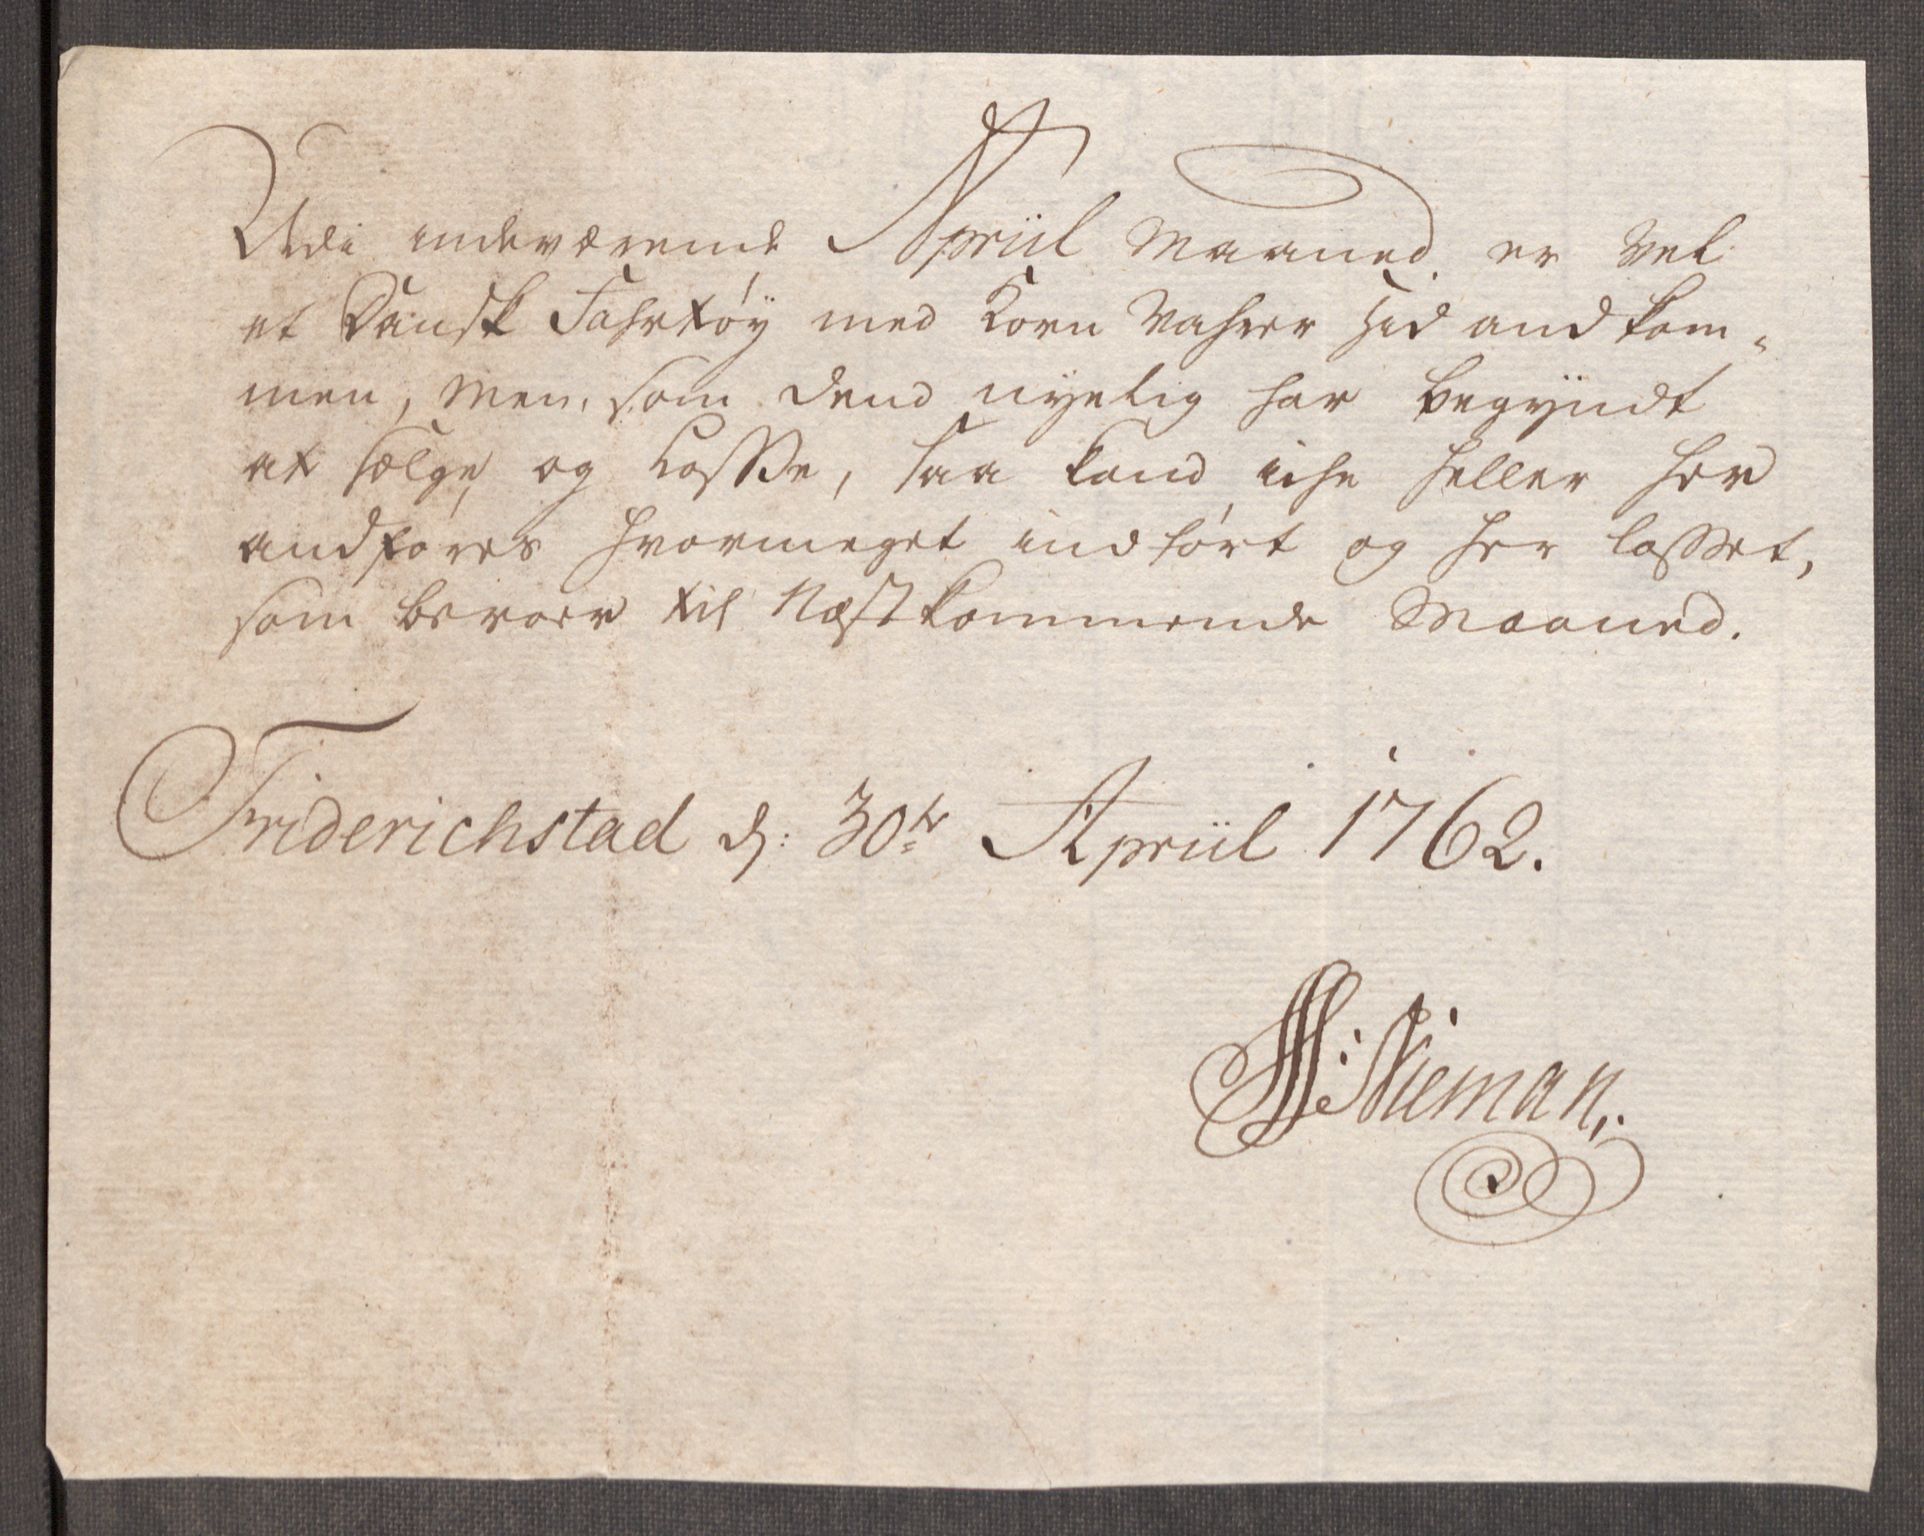 Udi indeværende Apriil Maaned er vel
et Dansk Fahrtøy med Korn Vahrer hid andkom-
men, Men, som dend nyelig har begyndt
at sælge og Losse, saa kand iche heller her
andføres hvormeget indført og her losset,
som beroer til Næstkommende Maaned.
Friderichstad d: 30te Apriil 1762.
Nieman,